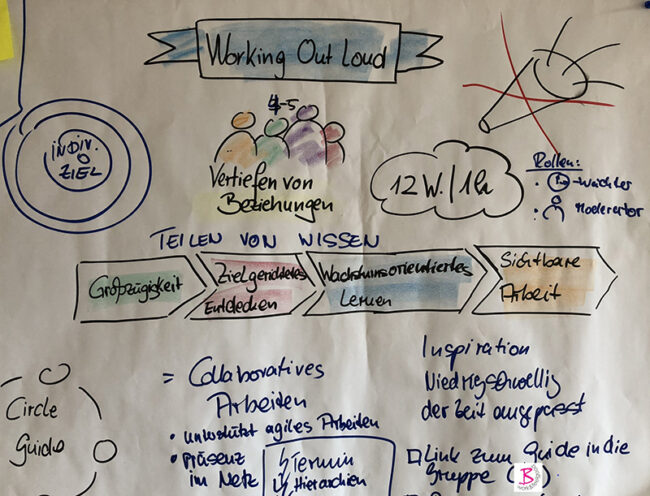 Working Out Loud
4-5
INDIV.
ZIEL
Vertiefen von
Beziehungen
12 W. / 1h
Rollen:
-Wächter
Moderator
TEILEN VON WISSEN
Großzügigkeit
Zielgerichtetes
Entdecken
Wachstumsorientiertes
Lernen
Sichtbare
Arbeit
Circle
Guide
= Collaboratives
Arbeiten
• unterstützt agiles Arbeiten
• Präsenz
im Netz
Termin
Hierarchien
Inspiration
Niedrigschwellig
der Zeit angepasst
Link zum Guide in die
Gruppe (
B